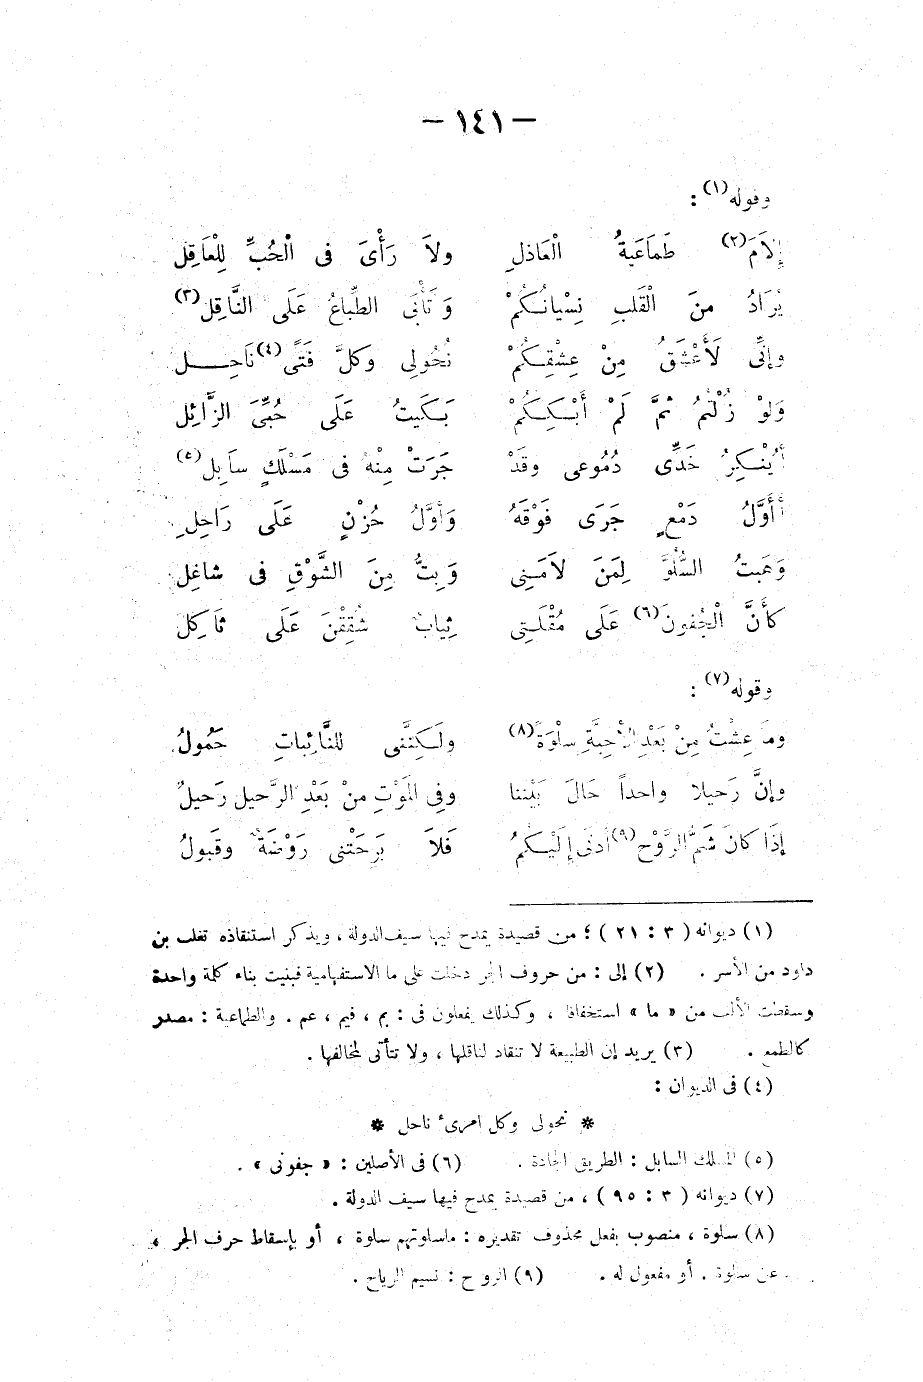 — ١٤١ —
وقوله(١) :
إِلاَمَ(٢) طَمَاعَيةُ الْعَاذلِ ولاَ رَأْىَ فى الْحُبِّ لِلْعَاقِل
يُرَادُ منَ الْقَلبِ نِسْيانُـكُمْ وَتَأْبَى الطِّباعُ عَلَى النَّاقِل(٣)
وإنِّى لَأَعْشَقُ مِنْ عِشْقِـكُمْ نُحُولِى وَكلَّ فَتًى(٤) نَاحِـــل
وَلوْ زُلْتُمُ ثمَّ لَمْ أَبْـكِـكُمْ بَـكَيتُ عَلَى حُبِّىَ الزَّائِل
أَيُنْـكِرُ خَدِّى دُمُوعى وقَدْ جَرَتْ مِنْهُ فى مَسْلَكٍ سابِل(٥)
أَأَوَّلُ دَمْعٍ جَرَى فَوْقَهُ وَأوَّلُ حُزْنٍ عَلَى رَاحِلِ
وَهَبتُ السُّلُوَّ لِمَنَ لاَمَـنِى وَبِتُّ مِنَ الشَّوْقِ فى شاغِل
كأَنَّ الْجُفونَ(٦) عَلَى مُقْلَـتِى ثِيابٌ شُقِقْنَ عَلَى ثَاكِلَ
وقوله(٧) :
وما عِشْتُ مِنْ بَعْدِ الأَحِبَّةِ سلْوَةً(٨) ولَـكِنَّنى للنَّائِباتِ حَمُولُ
وإنَّ رَحيلا واحداً حَالَ بَيْننا وفى المَوْتِ منْ بَعْدِ الرَّحيل رَحيلُ
إذَا كانَ شَمُّ الرَّوْح(٩) أدنَى إلَيْـكُمُ فَلاَ بَرِحَتْنى رَوْضَةٌ وقَبولُ
(١) ديوانه ( ٣ : ٢١ ) ؛ من قصيدة يمدح فيها سيف الدولة ، ويذكر استنقاذه تغلب بن
داود من الأسر . (٢) إلى : من حروف الجر دخلت على ما الاستفهامية فبنيت بناء كلمة واحدة
وسقطت الألف من « ما » استخفافا ، وكذلك يفعلون فى : بم ، فيم ، عم . والطماعية : مصدر
كالطمع . (٣) يريد إن الطبيعة لا تنقاد لناقلها ، ولا تتأتى لمخالفها .
(٤) فى الديوان :
* نحولى وكل امرئ ناحل *
(٥) المسلك السابل : الطريق الجادة . (٦) فى الأصلين : « جفونى » .
(٧) ديوانه ( ٣ : ٩٥ ) ، من قصيدة يمدح فيها سيف الدولة .
(٨) سلوة ، منصوب بفعل محذوف تقديره : ماسلوتهم سلوة ، أو بإسقاط حرف الجر ،
عن سلوة . أو مفعول له . (٩) الروح : نسيم الرياح .